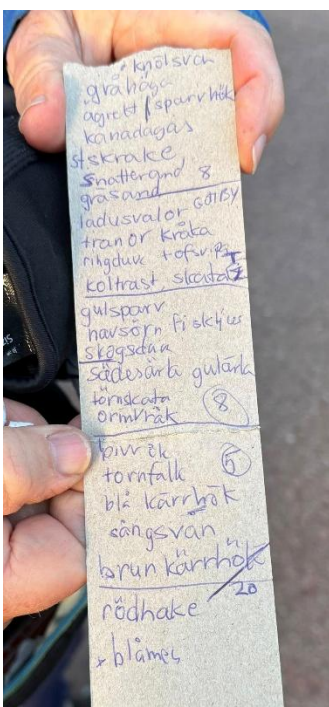 knölsvan
gråhäga
ägrett / sparvhök
kanadagås
st skrake
snattergnd 8
gräsand
ladusvalor GÖTBY
tranor kråka
ringduv tofsvipa
koltrast skata 7
gulsparv
havsörn fiskljus
skogsduva
sädesärla gulärla
törnskata 8
ormvråk
bivråk 5
tornfalk
blå kärrhök
sångsvan
brun kärrhök
20
rödhake
+ blåmes